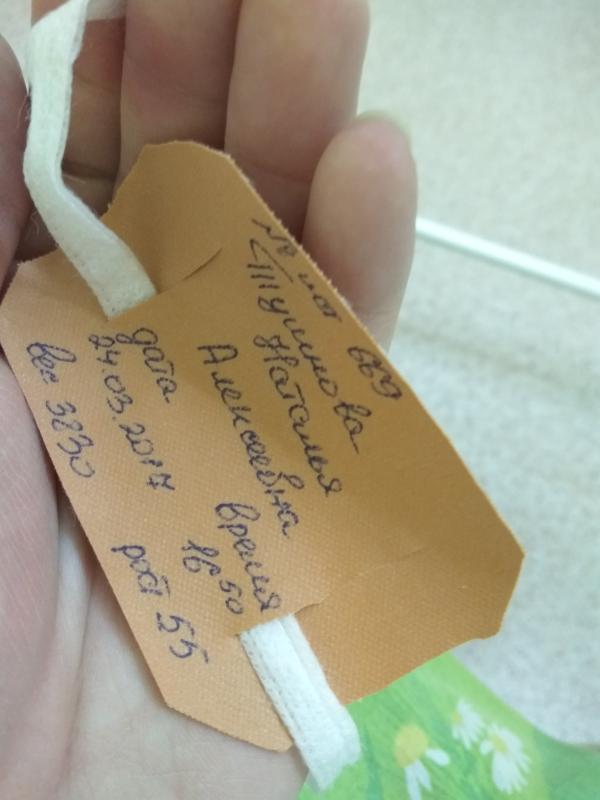 № ист 689
Наталья
Алексеевна
дата время
24.03.2017 16 50
вес 3830 рост 55